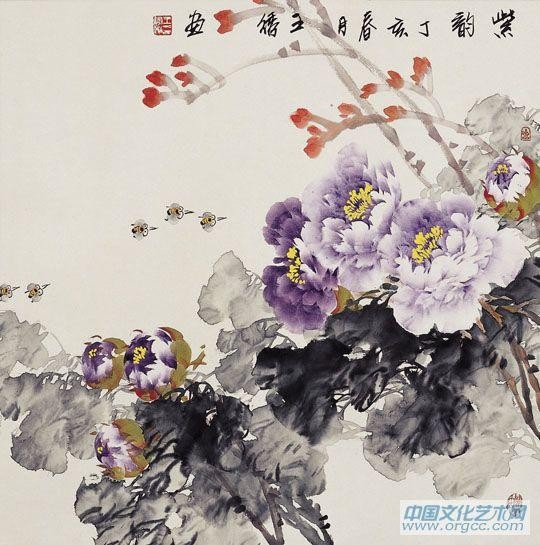 紫韵 丁亥 春月 王 画
中国文化艺术网
www.orgcc.com